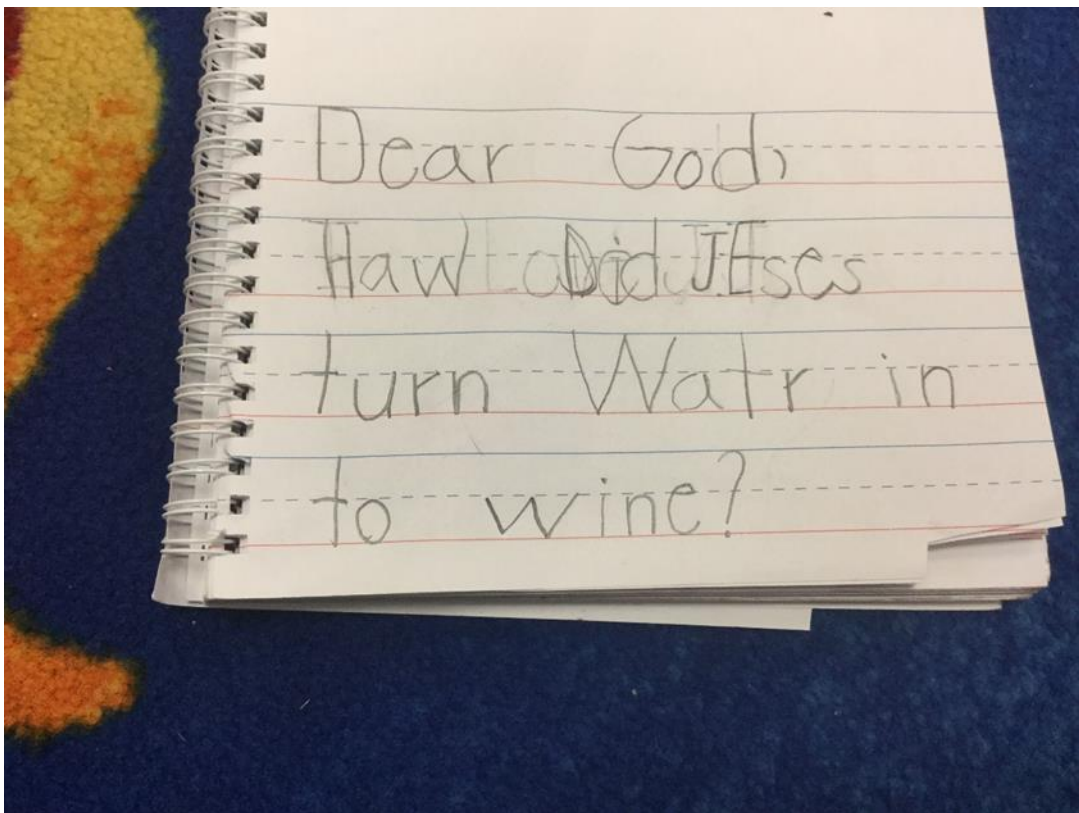 Dear God,
Haw Did JEses
turn Watr in
to wine?